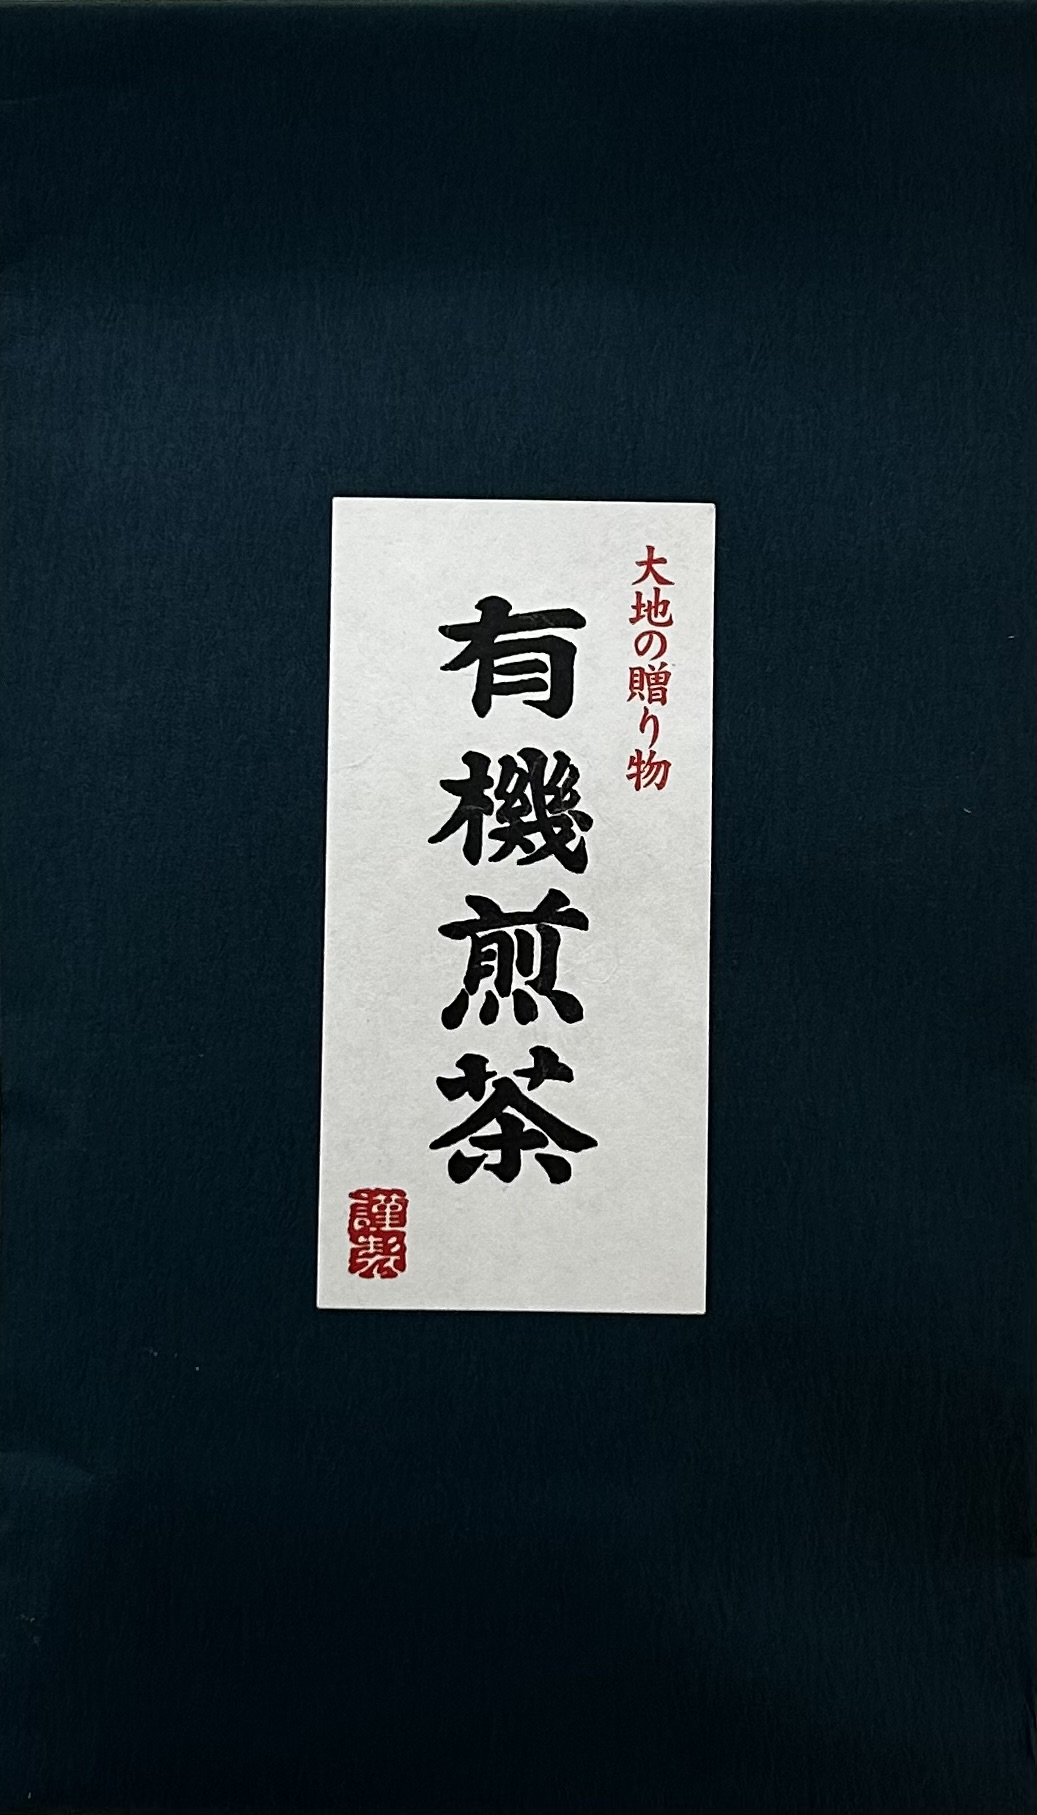 大地の贈り物
有機煎茶
謹製